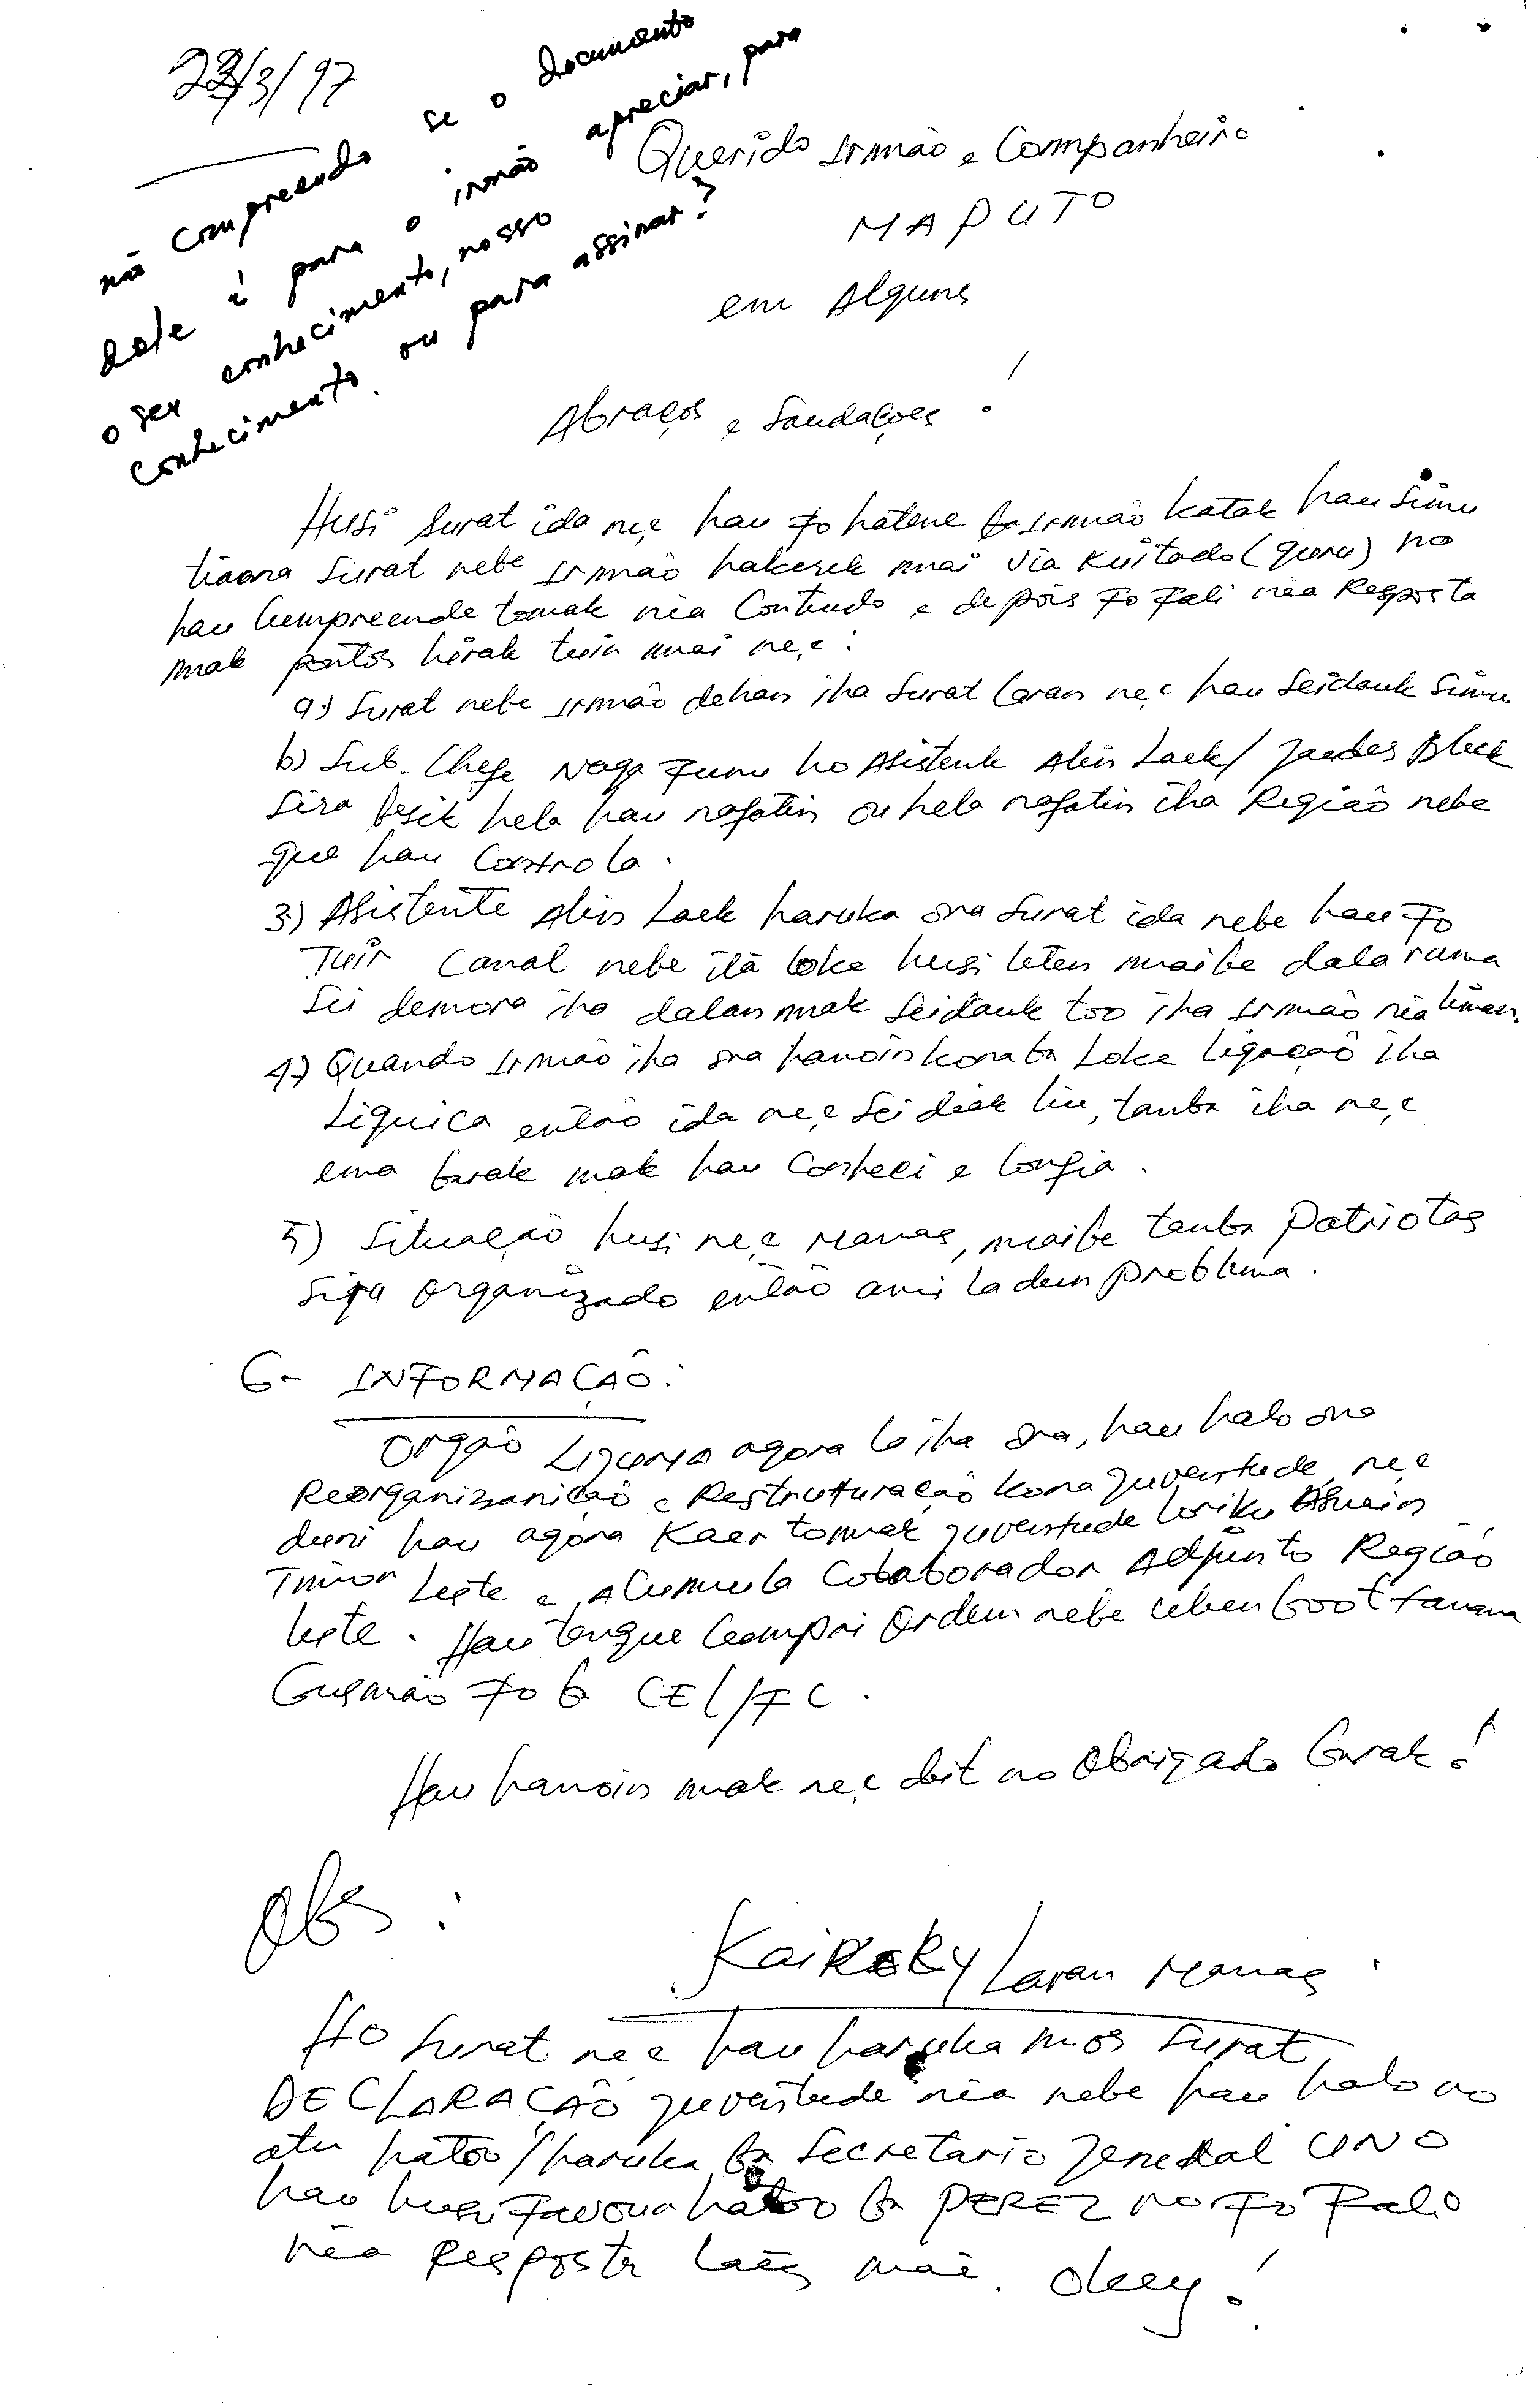 23/3/97
não compreendo se o documento
dele é para o irmão apreciar, para
o seu conhecimento, nosso
conhecimento. ou para assinar?
Querido Irmão e Companheiro
MAPUTO
em Algures
Abraços e Saudações!
Husi Surat ida ne,e hau fo hatene ba Irmão katak hau Simu
tiaona Surat nebe Irmão hakerek mai via Kuitado (guru) no
hau Cumpreende tomak nia Contudo e depois Fo Fali nia Resposta
mak pontos hirak tuir mai ne,e:
a) Surat nebe Irmão dehan iha Surat laran ne,e hau Seidauk Simu.
b) Sub-Chefe Naga Funu ho Asistente Alin Laek/
Sira besik hela hau nafatin ou hela nafatin iha Região nebe
que hau Controla.
3) Asistente Alin Laek haruka ona Surat ida nebe hau Fo
Tuir Canal nebe ita loke husi leten maibe dala ruma
Sei demora iha dalan mak Seidauk too iha Irmão nia liman.
4) Quando Irmão iha ona hanoin kona ba Loke ligação iha
Liquica então ida ne,e Sei diak liu, tanba iha ne,e
ema barak mak hau Conheci e Confia.
5) Situação husi ne,e Manas, maibe tanba Patriotas
Sira Organizado então ami la dun problema.
6- INFORMAÇÃO:
Orgão agora la iha ona, hau halo ona
Reorganizanição e Restruturação kona juventude, ne,e
duni hau agora Kaer tomak juventude loriku Asuain
Timor Leste e Acumula Colaborador Adjunto Região
Leste. Hau tenque Cumpri Ordem nebe ulun boot Xanana
Gusmão Fo ba CEL/FC.
Hau hanoin mak ne,e deit no Obrigado barak!
Obs:
Kairaky Laran Manas
Ho Surat ne,e hau haruka mos Surat
DECLARAÇÃO juventude nia nebe hau halo no
atu hatoo/haruka ba Secretario Jeneral UNO
hau husi Favour hatoo ba PEREZ no Fo Fali
nia Resposta lais mai. Okey!